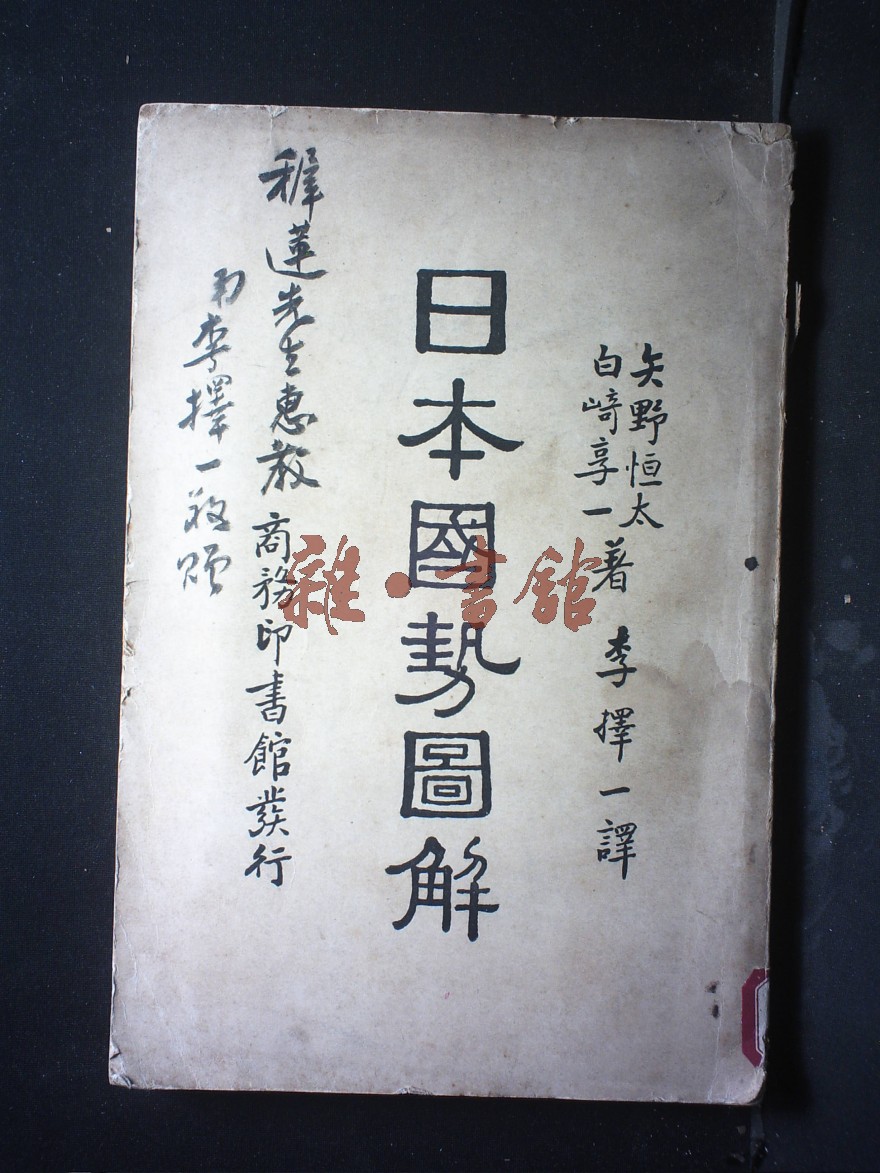 矢野恒太
白崎享一 著 李擇一譯
日本國勢圖解
商務印書館發行
先生惠教
弟李擇一敬贈
雜·書館